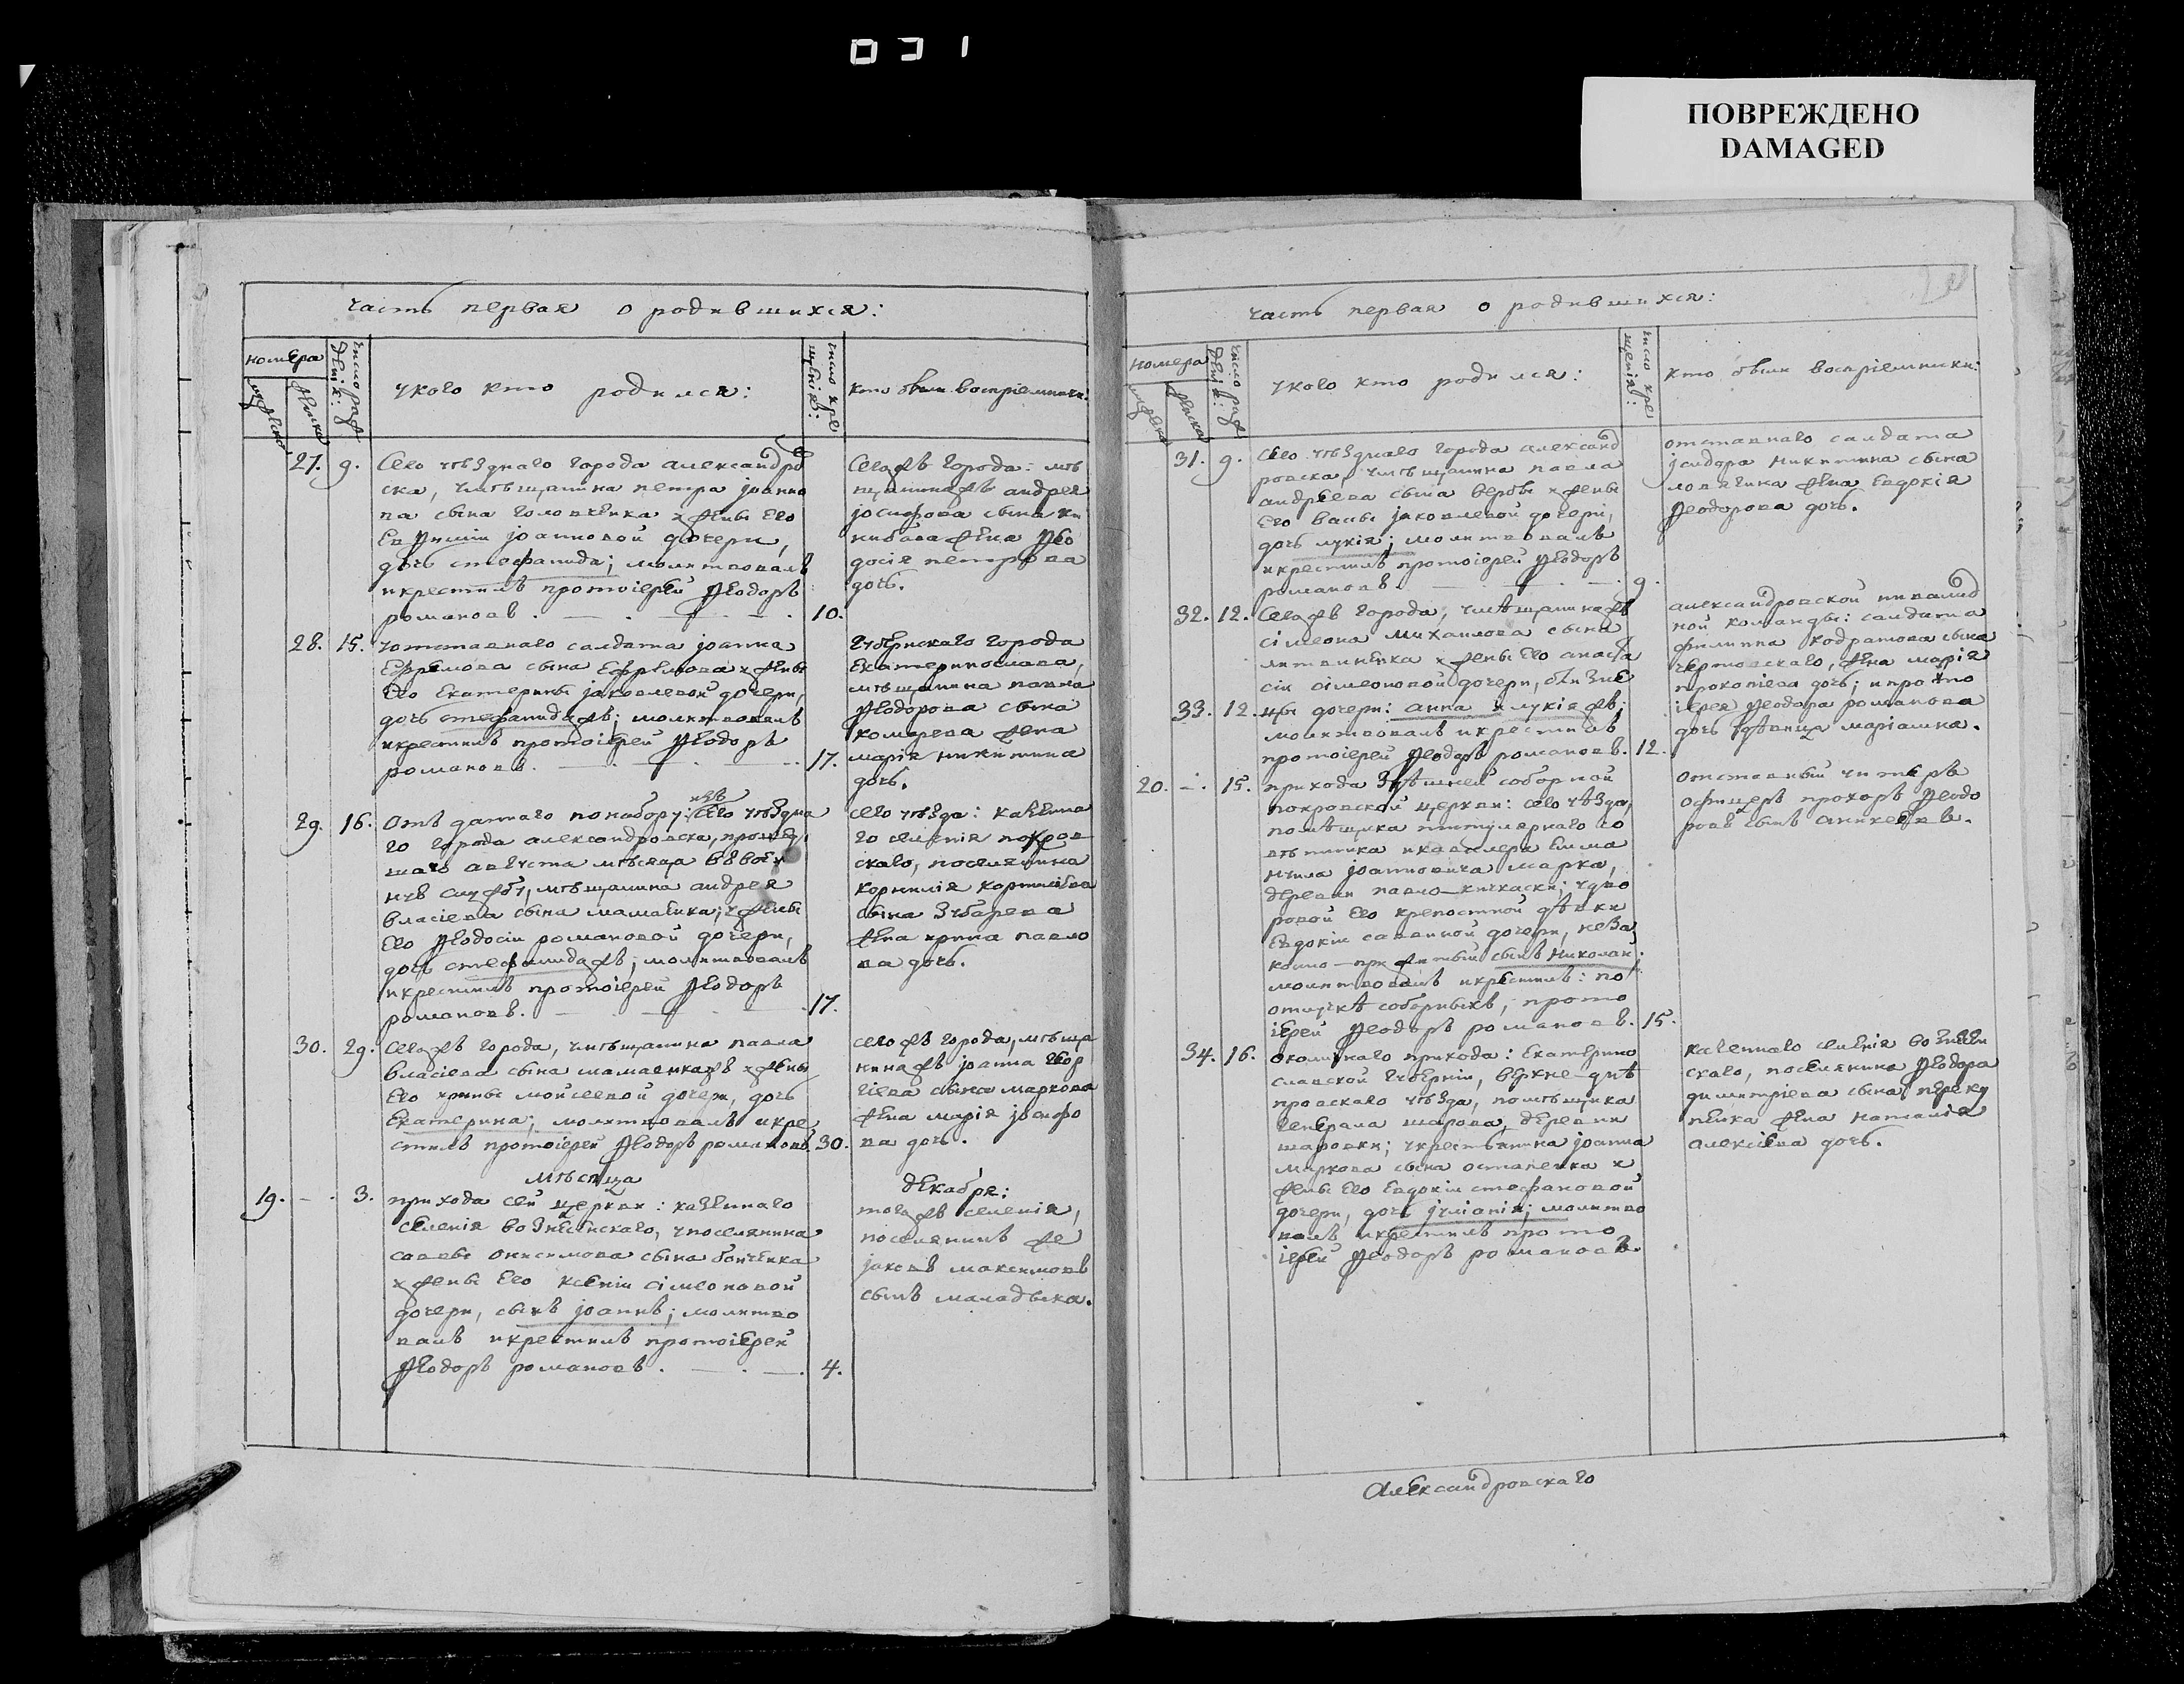 031
ПОВРЕЖДЕНО
DAMAGED
часть первая о родившихся:
номера
число рож
денія:
у кого кто родился:
число кре
щенія:
кто были воспріемники:
27. 9. Сего уѣзднаго города александро
ска, у мѣщанина петра іоанно
ва сына головченка и жены его
Евѳиміи іоанновой дочери,
дочь стефанида; молитвовалъ
и крестилъ протоіерей Ѳеодоръ
романовъ. 10.
Сегожъ города: мѣ
щанинажъ андрея
іосифова сына
жена Ѳео
досія петрова
дочь.
28. 15. у отставнаго салдата іоанна
Ефремова сына Ефремова и жены
Его Екатерины іаковлевой дочери,
дочь стефанидажъ; молитвовалъ
и крестилъ протоіерей Ѳеодоръ
романовъ. 17.
Губернскаго города
Екатеринослава,
мѣщанина павла
Ѳеодорова сына
комарева жена
марія никитина
дочь.
29. 16. Отъ даннаго по набору: изъ сего уѣздна
го города александровска, прошед
шаго августа мѣсяца въ воен
ную службу, мѣщанина андрея
власіева сына мамаенка; у жены
Его Ѳеодосіи романовой дочери,
дочь стефанидажъ; молитвовалъ
и крестилъ протоіерей Ѳеодоръ
романовъ. 17.
Сего уѣзда: казенна
го селенія покров
скаго, поселянина
корнилія корниліева
сына зубарева
жена ирина павло
ва дочь.
30. 29. Сегожъ города, у мѣщанина павла
власіева сына мамаенкажъ и жены
Его ирины мойсеевой дочери, дочь
Екатерина; молитвовалъ и кре
стилъ протоіерей Ѳеодоръ романовъ. 30.
Сегожъ города, мѣща
нинажъ іоанна геор
гіева сына маркова
жена марія іосифо
ва дочь.
мѣсяца декабря:
19. 3. прихода сей церкви: казеннаго
селенія вознесенскаго, у поселянина
саввы онисимова сына бойченка
и жены Его ксеніи сімеоновой
дочери, сынъ іоаннъ; молитво
валъ и крестилъ протоіерей
Ѳеодоръ романовъ. 4.
тогожъ селенія,
поселянинъ же
іаковъ максимовъ
сынъ маладыка.
часть первая о родившихся:
номера
число рож
денія:
у кого кто родился:
число кре
щенія:
кто были воспріемники:
31. 9. Сего уѣзднаго города александ
ровска, у мѣщанина павла
андреева сына вербы и жены
Его вассы іаковлевой дочери,
дочь лукія; молитвовалъ
и крестилъ протоіерей Ѳеодоръ
романовъ. 9.
отставнаго салдата
ісидора никитина сына
ловягина жена Евдокія
Ѳеодорова дочь.
32. 12. Сегожъ города, у мѣщанинажъ
сімеона михаилова сына
литвиненка и жены Его анаста
сіи сімеоновой дочери, близне
33. 12. цы дочери: анна и лукіяжъ;
молитвовалъ и крестилъ
протоіерей Ѳеодоръ романовъ. 12.
александровской инвалид
ной команды: салдата
филиппа кодратова сына
чертовскаго, жена марія
прокопіева дочь; и прото
іерея Ѳеодора романова
дочь дѣвица маріамна.
20. 15. прихода здѣшней соборной
покровской церкви: сего уѣзда,
помѣщика титулярнаго со
вѣтника и кавалера Емма
нуила іоанновича марка,
деревни павло-кичкаски; у дво
ровой Его крепостной дѣвки
Евдокіи саввиной дочери, незаз
конно-прижитый сынъ николай;
молитвовалъ и крестилъ: по
отлучкѣ соборныхъ, прото
іерей Ѳеодоръ романовъ. 15.
отставный унтеръ
офицеръ прохоръ Ѳеодо
ровъ сынъ аникеевъ.
34. 16. околичнаго прихода: Екатерино
славской губерніи, верхне-днѣ
провскаго уѣзда, помѣщика
генерала шарова, деревни
шаровки; у крестьянина іоанна
маркова сына остапенка и
жены Его Евдокіи стефановой
дочери, дочь іуліанія; молитво
валъ и крестилъ прото
іерей Ѳеодоръ романовъ.
казеннаго селенія вознесен
скаго, поселянина Ѳеодора
димитріева сына
жена наталія
алексіева дочь.
Александровскаго